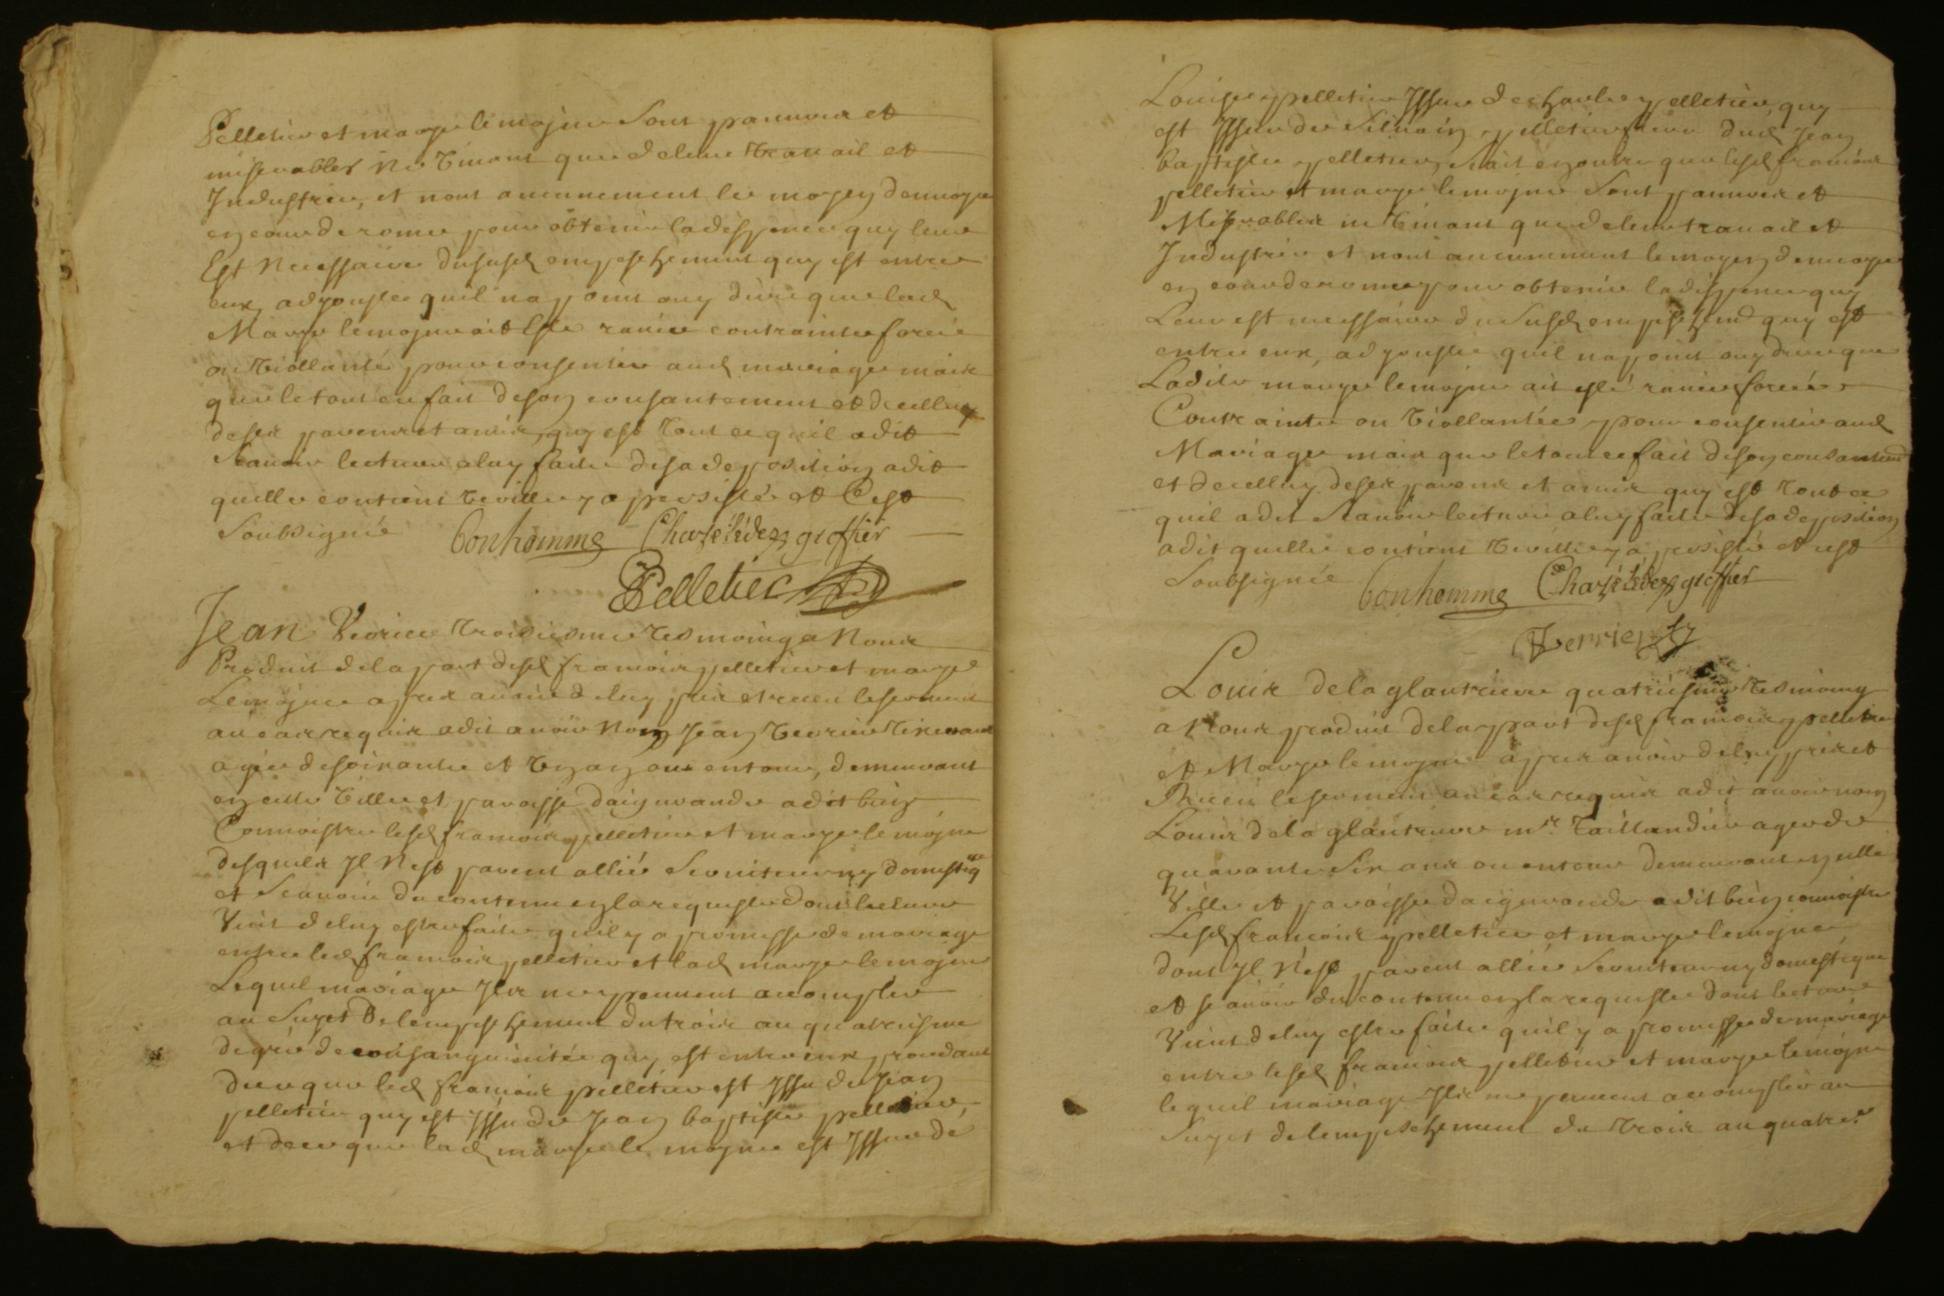 Pelletier et marye lemojne Sont pauuves et
miserables Ne Viuant que de leur trauail et
Industrie, et nont aucunement le moyen denuoyer
en cour de rome pour obtenir la despence quy leur
Est Necessaire dususd empeschement quy est entre
eux, adjouste quil na point ouy dire que lad
Marye lemojne ait Esté rauie contrainte forcée
ou Viollantée pour consentir aud mariage mais
que le tout ce fait de son consantement et dicelluy
de ses parens et amis, quy est tout ce quil a dit
Scauoir lecture a luy faite de sa deposition a dit
quelle contient Verité y a persisté et C est
Soubsigné Bonhomme greffier
Pelletier
Jean Verrier troisiesme tesmoing a Nous
Produit de la part desd francois pelletier et marye
Lemojne apres auoir de luy pris et receu le serment
au cas requis a dit auoir Nom Jean Verrier
agé de soixante et un ans ou enuiron, demeurant
en cette Ville et paroisse daigurande a dit bien
Connoistre lesd francois pelletier et marye le mojne
desquels Il N est parent allié Seruiteur ny domestiq
et Scauoir du contenu en la requeste dont lecture
Vient de luy estre faite quil y a promesse de mariage
entre led francois pelletier et lad marye lemojne
Lequel mariage Ils ne peuuent acomplir
au Sujet de lempeschement du trois au quatriesme
degré de consanguinité quy est entre eux prouenant
de ce que led francois pelletier est Issu de Jean
pelletier quy est Issu de Jean baptiste pelletier,
et de ce que lad marye le mojne est Issue de
Louise pelletier Issue de charle pelletier quy
est Issu de Siluain pelletier frere dud Jean
baptiste pelletier, Scait en outre que lesd francois
pelletier et marye lemojne Sont pauures et
Miserables ne Viuant que de leur trauail et
Industrie et nont aucunement le moyen denuoyer
en cour de rome pour obtenir la dispence quy
Leur est necessaire du Susd empeschemt quy est
entre eux, adjouste quil na point ouy dire que
Ladite marye lemojne ait esté rauie forcée
Contrainte ou Viollantée pour consentir aud
Mariage mais que le tout ce fait de son consantemt
et dicelluy de ses parens et amis quy est tout ce
quil a dit Scauoir lecture a luy faite de sa deposition
a dit quelle contient Verité y a persisté et c est
Soubsigné Bonhomme greffier
Verrier
Louis de la glautriere quatriesme tesmoing
a Nous produit de la part desd francois pelletier
et Marye lemojne apres auoir de luy pris et
Receu le serment au cas requis a dit auoir nom
Louis de la glautriere mr Taillandier agé de
quarante Six ans ou enuiron demeurant en cette
Ville et paroisse daigurande a dit bien connoistre
Lesd francois pelletier et marye lemojne
dont Il N est parent allié Seruiteur ny domestique
et Scauoir du contenu en la requeste dont lecture
Vient de luy estre faite quil y a promesse de mariage
entre lesd francois pelletier et marye lemojne
lequel mariage Ils ne peuuent acomplir au
Sujet de lempeschement du trois au quatre